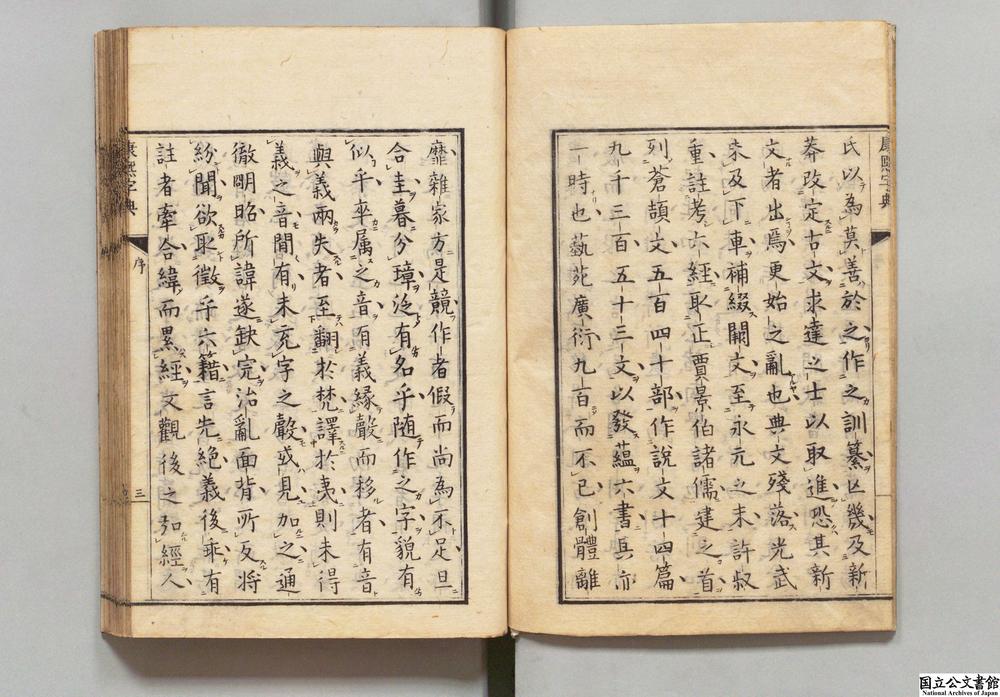 康熙字典
氏以為莫善於之作之訓纂亡幾及新
莽攺定古文求達之士以取進恐其新
文者出焉更始之亂也典文殘落光武
未及下車補綴闕文至永元之末許叔
重註考六經取正賈景伯諸儒建之首
列蒼頡文五百四十部作說文十四篇
九千三百五十三文以發蘊六書具亦
一時也蓺苑廣衍九百而不已創體離
靡雜家方是競作者假而尚為不足旦
合圭暮分璋泛有名乎随作之字貌有
似乎卒属之音有義緣聲而移者有音
與義兩失者至翻於梵譯於夷則未得
義之音閒有未充字之聲或見加之通
徹明昭所諱遂缺完治亂面背所反将
紛聞欲取徵乎六籍言先絕義後乖有
註者牽合緯而累經文觀後之弘經人
康熙字典
序
三
国立公文書館
National Archives of Japan